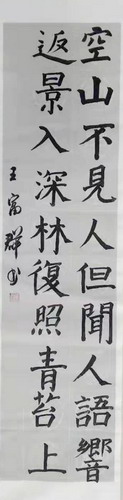 空山不見人但聞人語響
返景入深林復照青苔上
王富群書